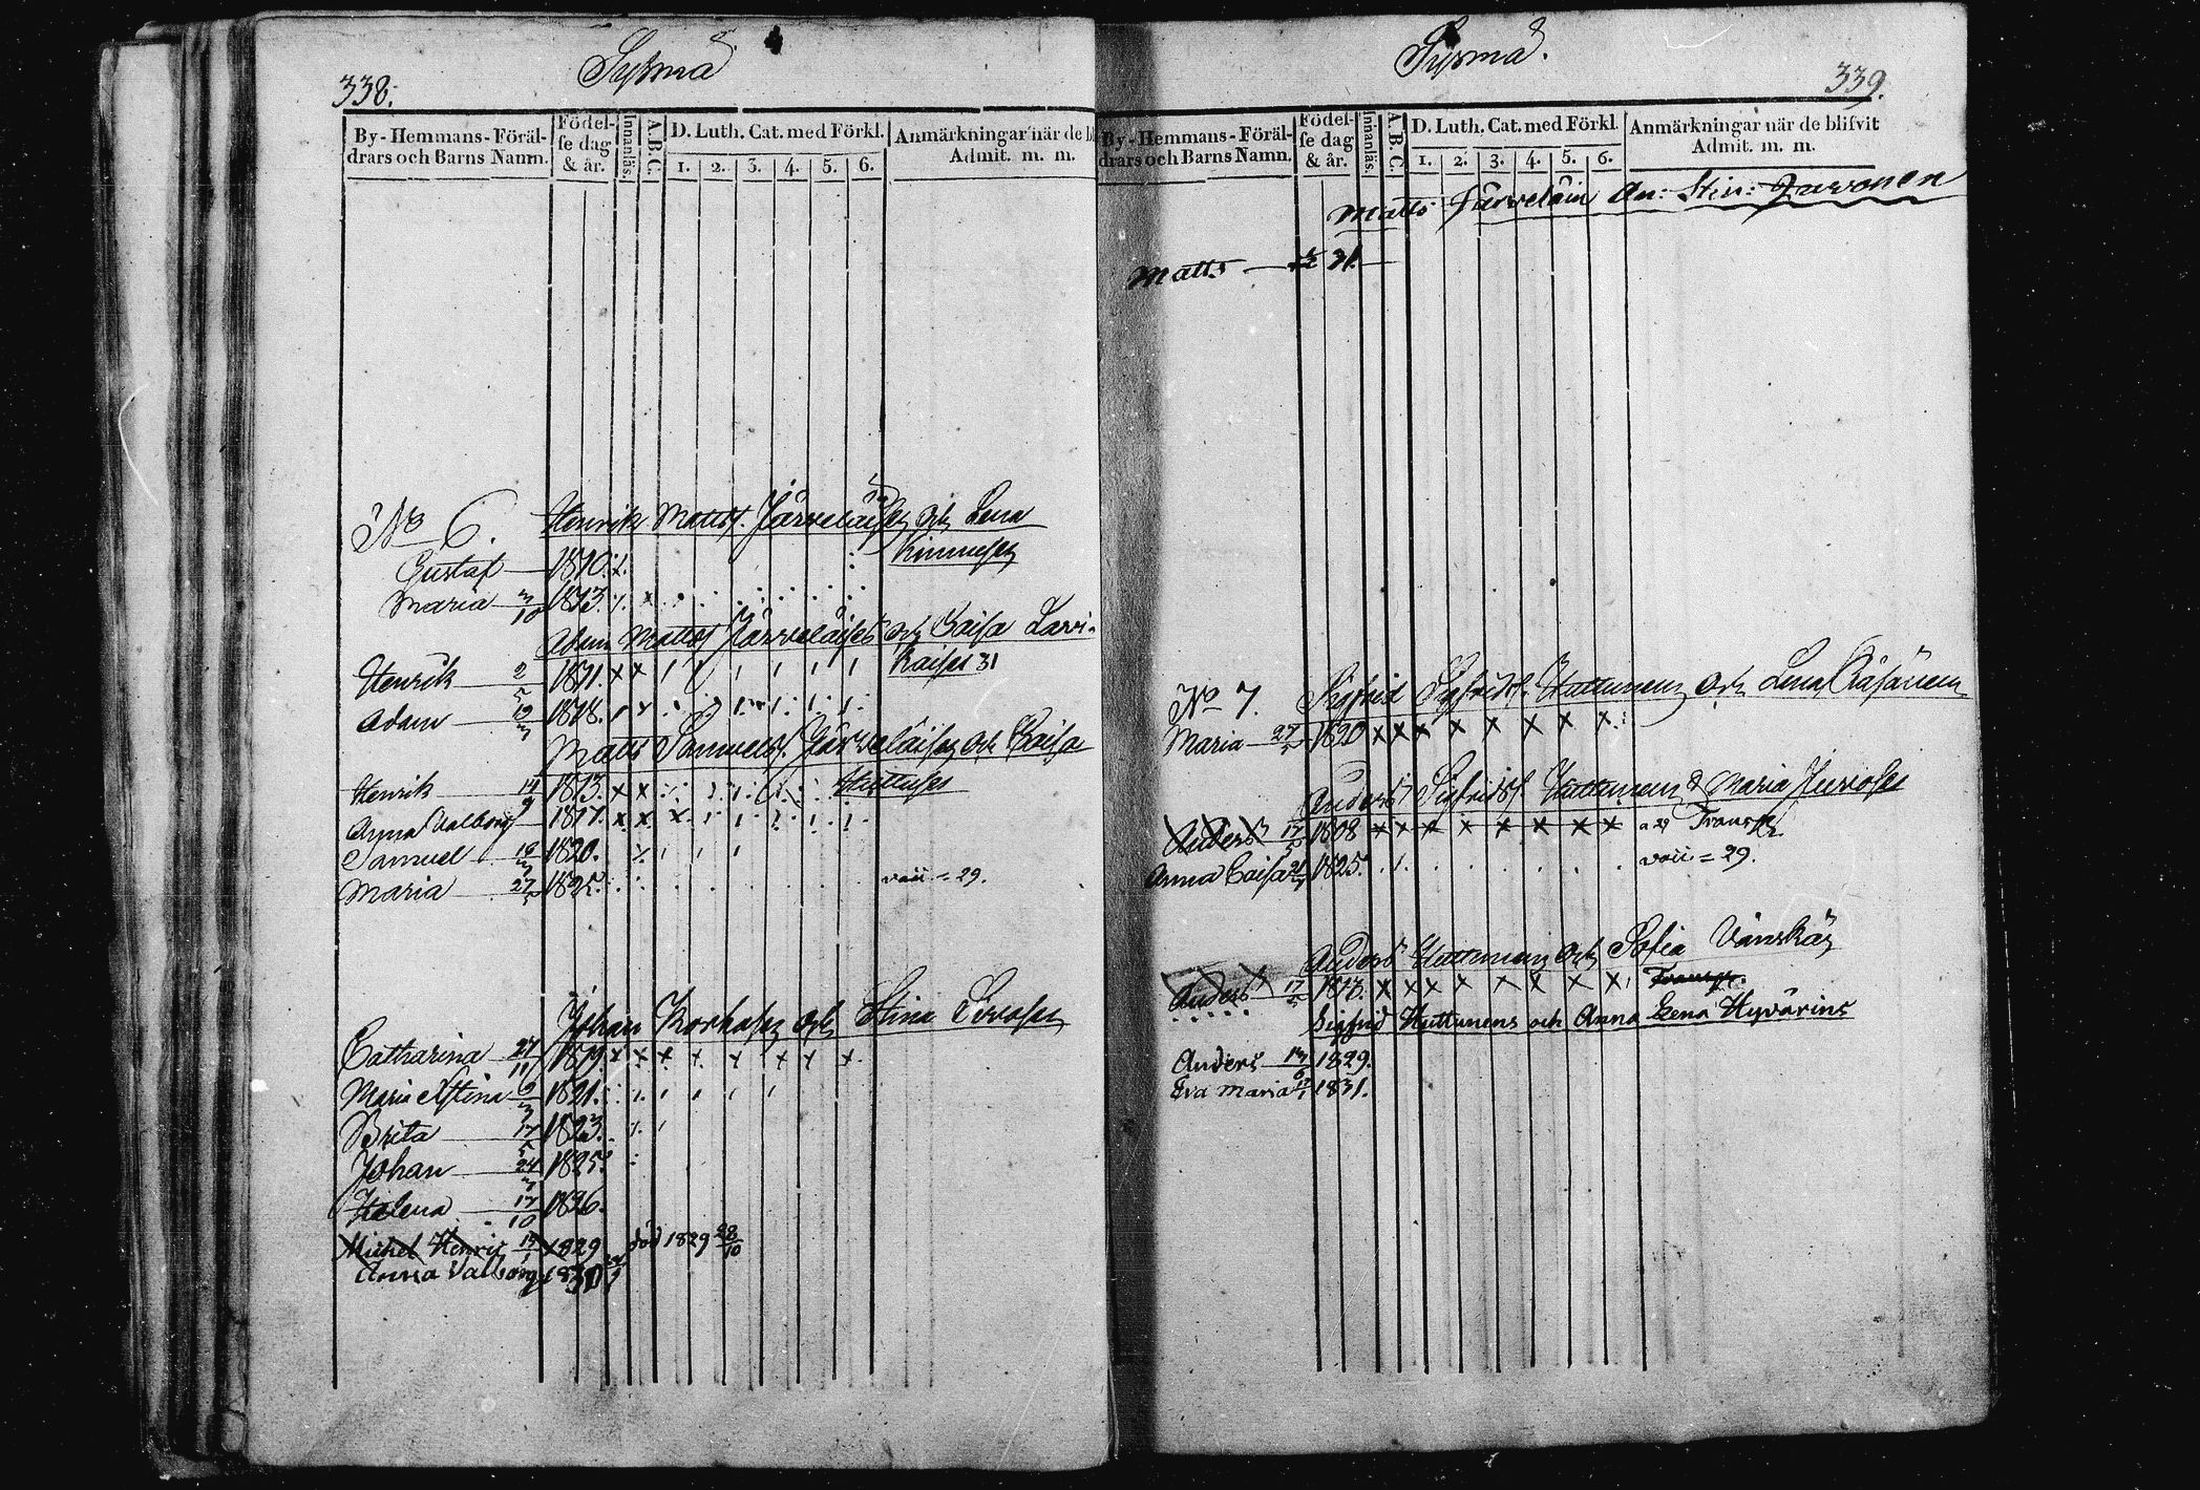 338.
Sysmä
By-Hemmans-Föräl-
drars och Barns Namn.
Födel-
se dag
& år.
Innanläs.
A.B.C.
D. Luth. Cat. med Förkl.
1. 2. 3. 4. 5. 6.
Anmärkningar när de bl
Admit. m. m.
No 6. Henrik Matts. Järveläise och Lena
Kinnuse
Gustaf 1810.
Maria 10 1813.
Adam Matts Järveläise och Caisa Larri-
kaise 31
Henrik 2/5 1811. x x
Adam 19 1818.
Matts Samuels. Järveläise och Caisa
Huttuse
Henrik 14/9 1813. x x
Anna Valborg 1817. x x x
Samuel 16 1820.
Maria 27 1825. vacc. = 29.
Johan Korhose och Stina
Catharina 27/11 1819. x x x x x x x x
Maria Stina 1821.
Brita 17 1823.
Johan 24 1825.
Helena 17/10 1826.
Michel Henric 15/1 1829 död 1829 28/10
Anna Valborg 1830
Sysmä.
339.
By-Hemmans-Föräl-
drars och Barns Namn.
Födel-
se dag
& år.
Innanläs.
A.B.C.
D. Luth. Cat. med Förkl.
1. 2. 3. 4. 5. 6.
Anmärkningar när de blifvit
Admit. m. m.
Matts Järveläin An: Stin: Juvonen
Matts 31.
No 7. Sigfrid Sigfrids. Huttunen och Lena Räsänen
Maria 27 1820 x x x x x x x x
Anders Sigfrids Huttunen & Maria
Anders 17 1808 x x x x x x x x Transp.
Anna Caisa 1825. vacc. = 29.
Anders Huttunen och Sofia Vänskä
Anders 17 1813. x x x x x x x x Transp.
Sigfrid Huttunens och Anna Lena Hyvärins
Anders 6 1829.
Eva Maria 1831.